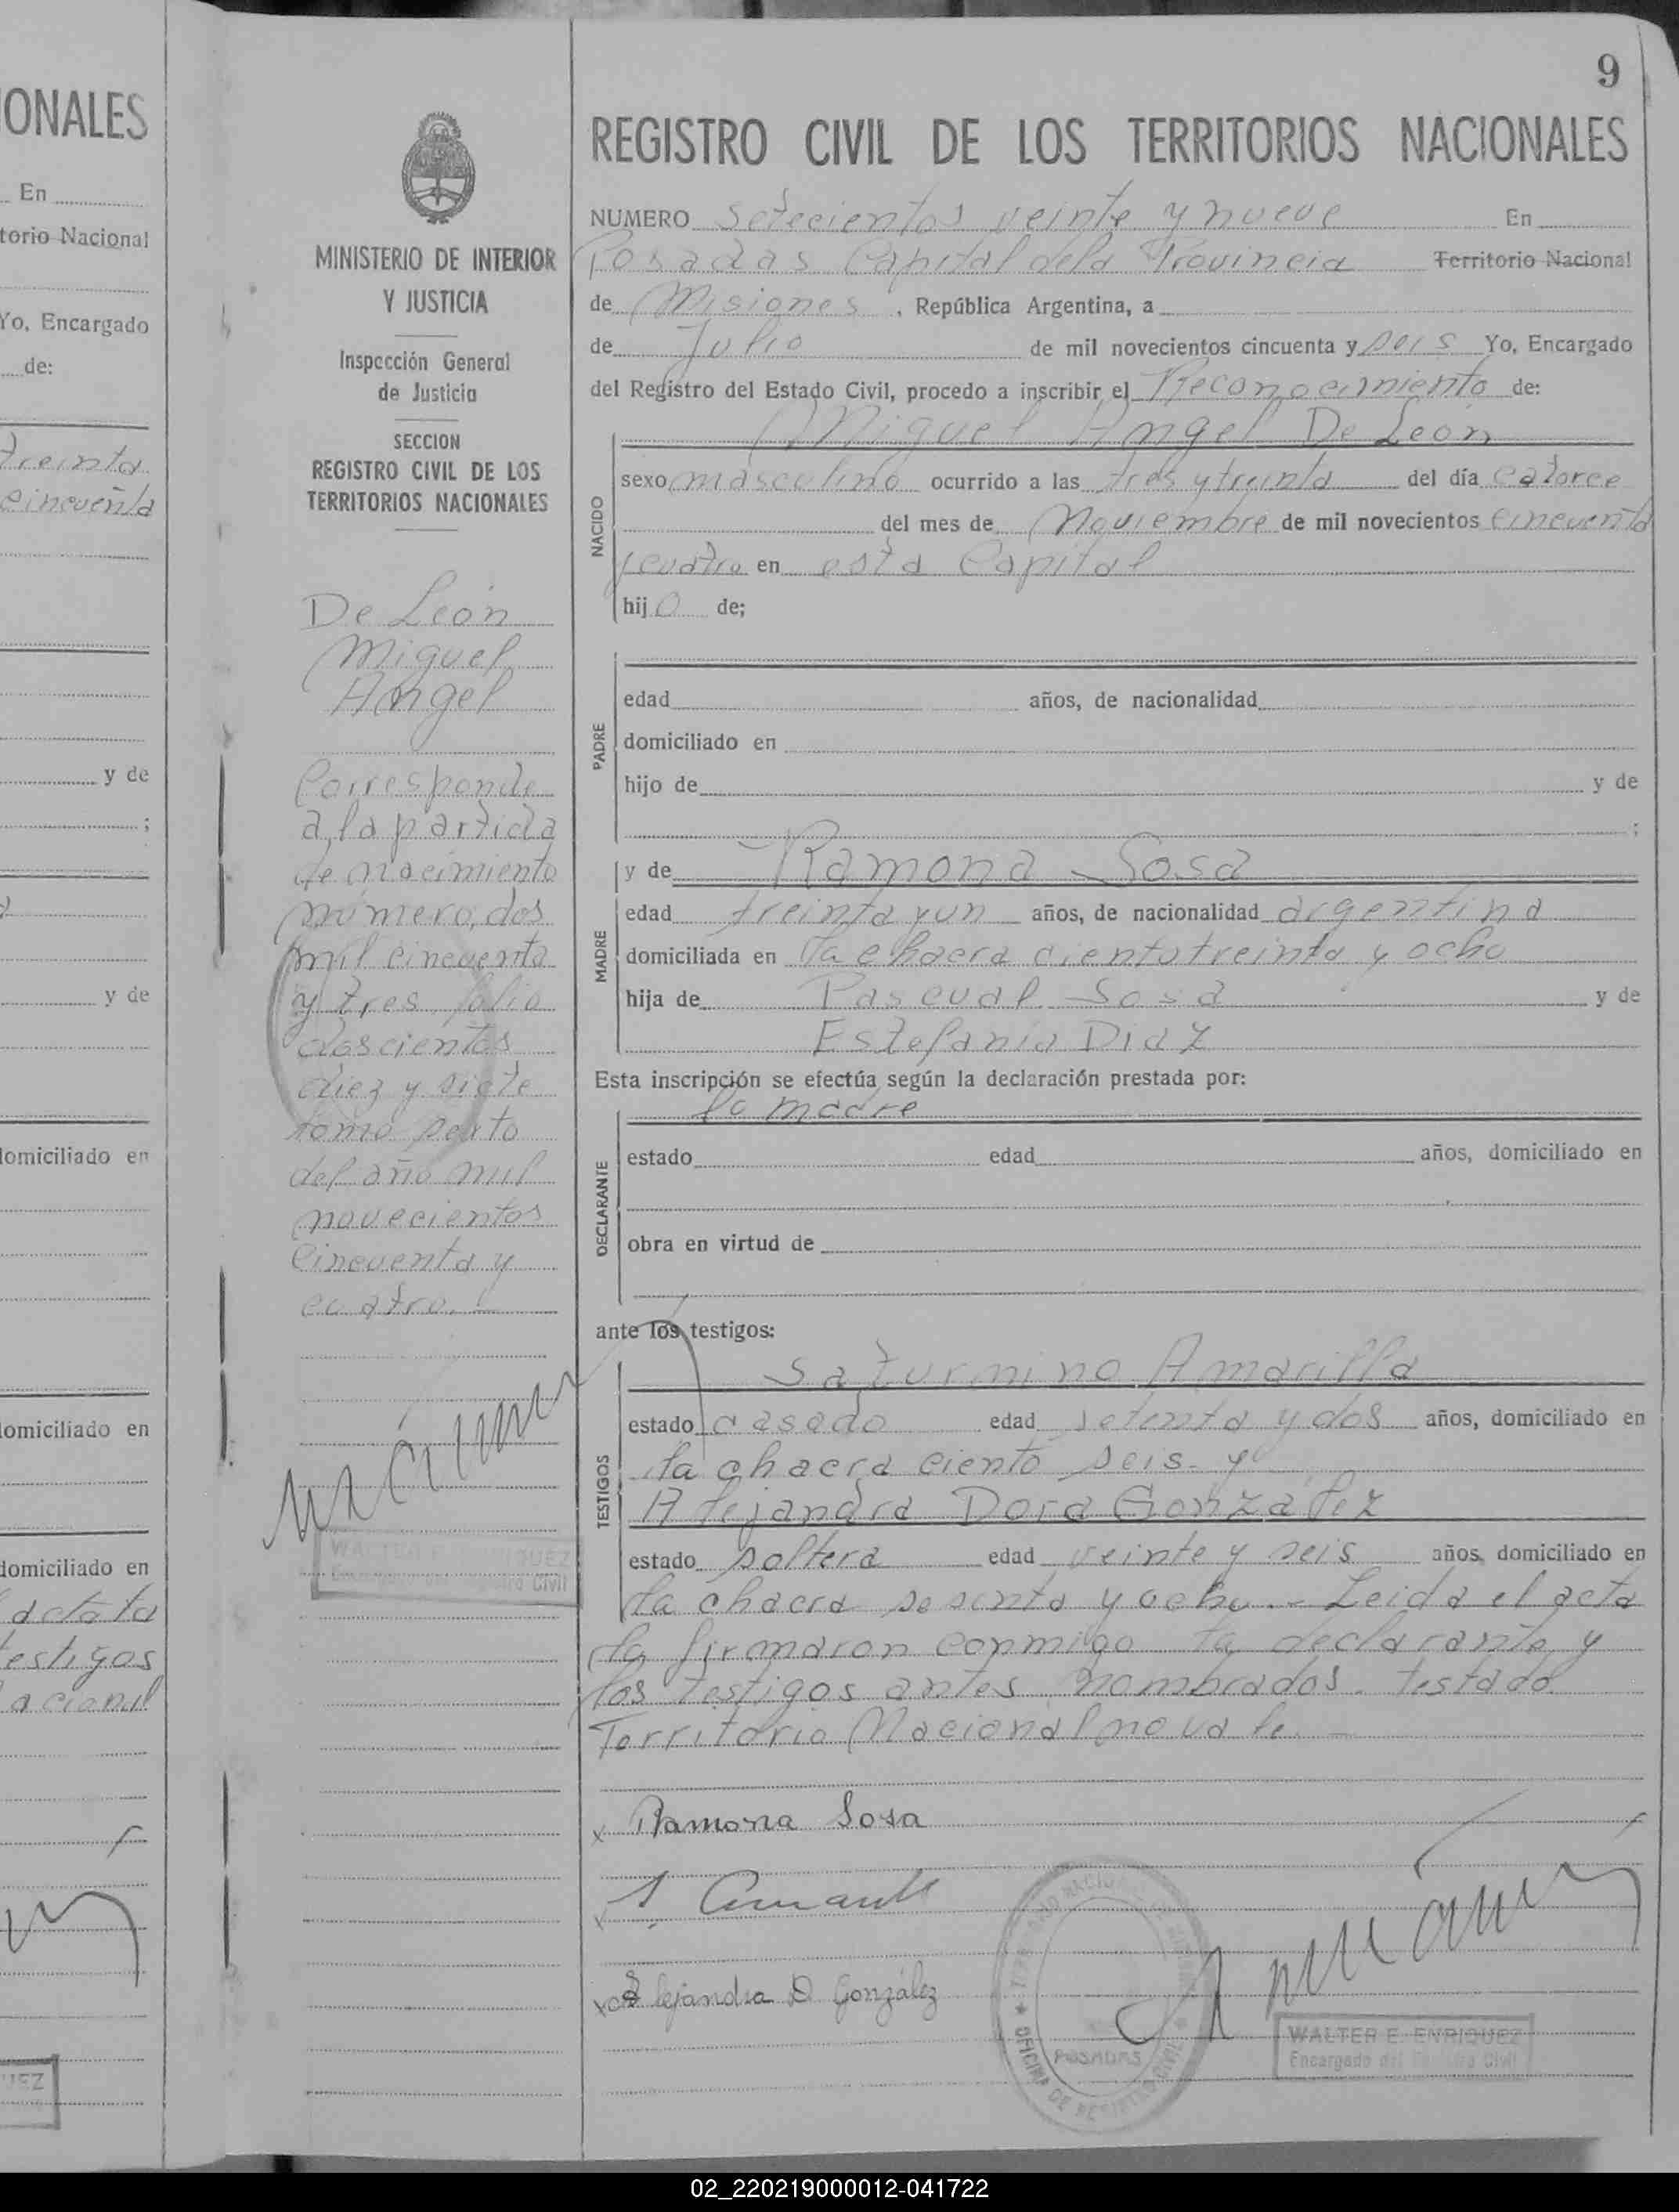 ONALES
En
torio Nacional
Yo, Encargado
de:
treinta
cincuenta
y de
;
y de
domiciliado en
domiciliado en
domiciliado en
acta la
testigos
acional
UEZ
MINISTERIO DE INTERIOR
Y JUSTICIA
Inspección General
de Justicia
SECCION
REGISTRO CIVIL DE LOS
TERRITORIOS NACIONALES
De León
Miguel
Angel
Corresponde
a la partida
de nacimiento
número dos
mil cincuenta
y tres folio
doscientos
diez y siete
tomo sexto
del año mil
novecientos
cincuenta y
cuatro.
WALTER E. ENRIQUEZ
Encargado del Registro Civil
9
REGISTRO CIVIL DE LOS TERRITORIOS NACIONALES
NUMERO Setecientos veinte y nueve En
Posadas Capital dela Provincia Territorio Nacional
de Misiones, República Argentina, a
de Julio de mil novecientos cincuenta y seis Yo, Encargado
del Registro del Estado Civil, procedo a inscribir el Reconocimiento de:
Miguel Angel De León
NACIDO
sexo masculino ocurrido a las tres y treinta del día catorce
del mes de Noviembre de mil novecientos cincuenta
y cuatro en esta Capital
hijo de;
PADRE
edad años, de nacionalidad
domiciliado en
hijo de y de
;
MADRE
y de Ramona Sosa
edad treinta y un años, de nacionalidad argentina
domiciliada en la chacra ciento treinta y ocho
hija de Pascual Sosa y de
Estefania Diaz
Esta inscripción se efectúa según la declaración prestada por:
la madre
DECLARANTE
estado edad años, domiciliado en
obra en virtud de
ante los testigos:
TESTIGOS
Saturnino Amarilla
estado casado edad setenta y dos años, domiciliado en
la chacra ciento seis - y
Alejandra Dora González
estado soltera edad veinte y seis años, domiciliado en
la chacra sesenta y ocho.- Leida el acta
la firmaron conmigo la declarante y
los testigos antes nombrados. Testado
Territorio Nacional no vale.-
x Ramona Sosa
x S.
x Alejandra D González
OFICINA DE REGISTRO CIVIL
POSADAS
WALTER E. ENRIQUEZ
Encargado del Registro Civil
02_220219000012-041722